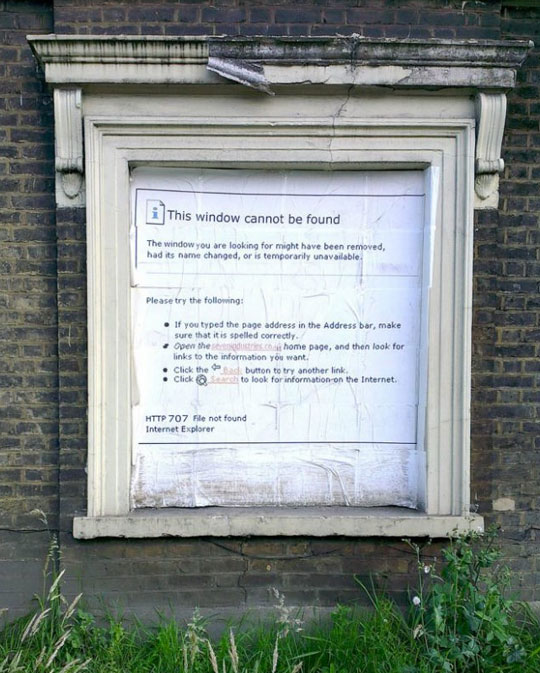 This window cannot be found
The window you are looking for might have been removed,
had its name changed, or is temporarily unavailable.
Please try the following:
If you typed the page address in the Address bar, make
sure that it is spelled correctly.
Open the home page, and then look for
links to the information you want.
Click the Back button to try another link.
Click Search to look for information on the Internet.
HTTP 707 File not found
Internet Explorer